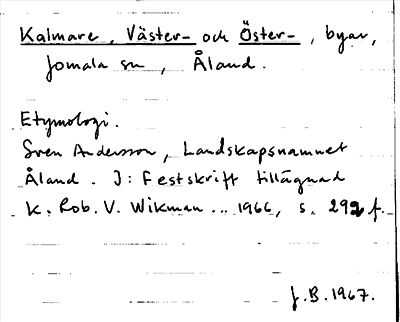 Kalmare, Väster- och Öster-, byar,
Jomala sn, Åland.
Etymologi.
Sven Andersson, Landskapsnamnet
Åland. I: Festskrift tillägnad
K. Rob. V. Wikman... 1966, s. 292 f.
J.B. 1967.